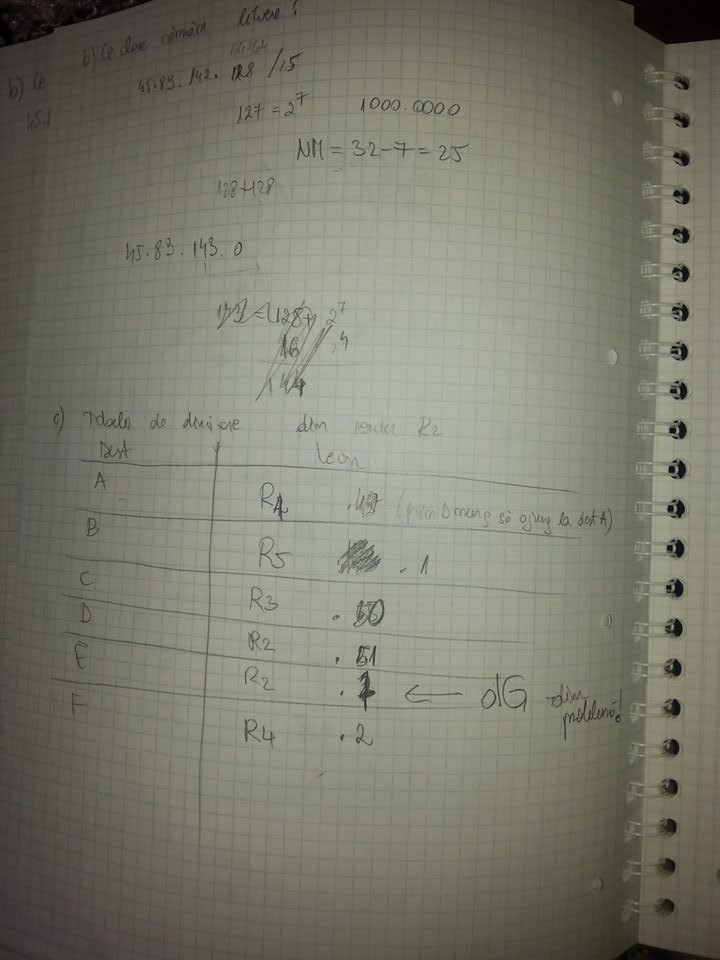 b) Ce b) Ce clase rămân libere?
64+64
45.83.142.128 /25
45.8
127 = 2^7 1000.0000
NM = 32-7 = 25
128+128
45.83.143.0
128+ 2^7
16 2^4
144
c) Tabela de dirijare din router R2
Dest
A R4 (prin D merg să ajung la dest A)
B R5 .1
C R3 .50
D R2 .51
E R2 .1 ← dG din problemă!
F R4 .2